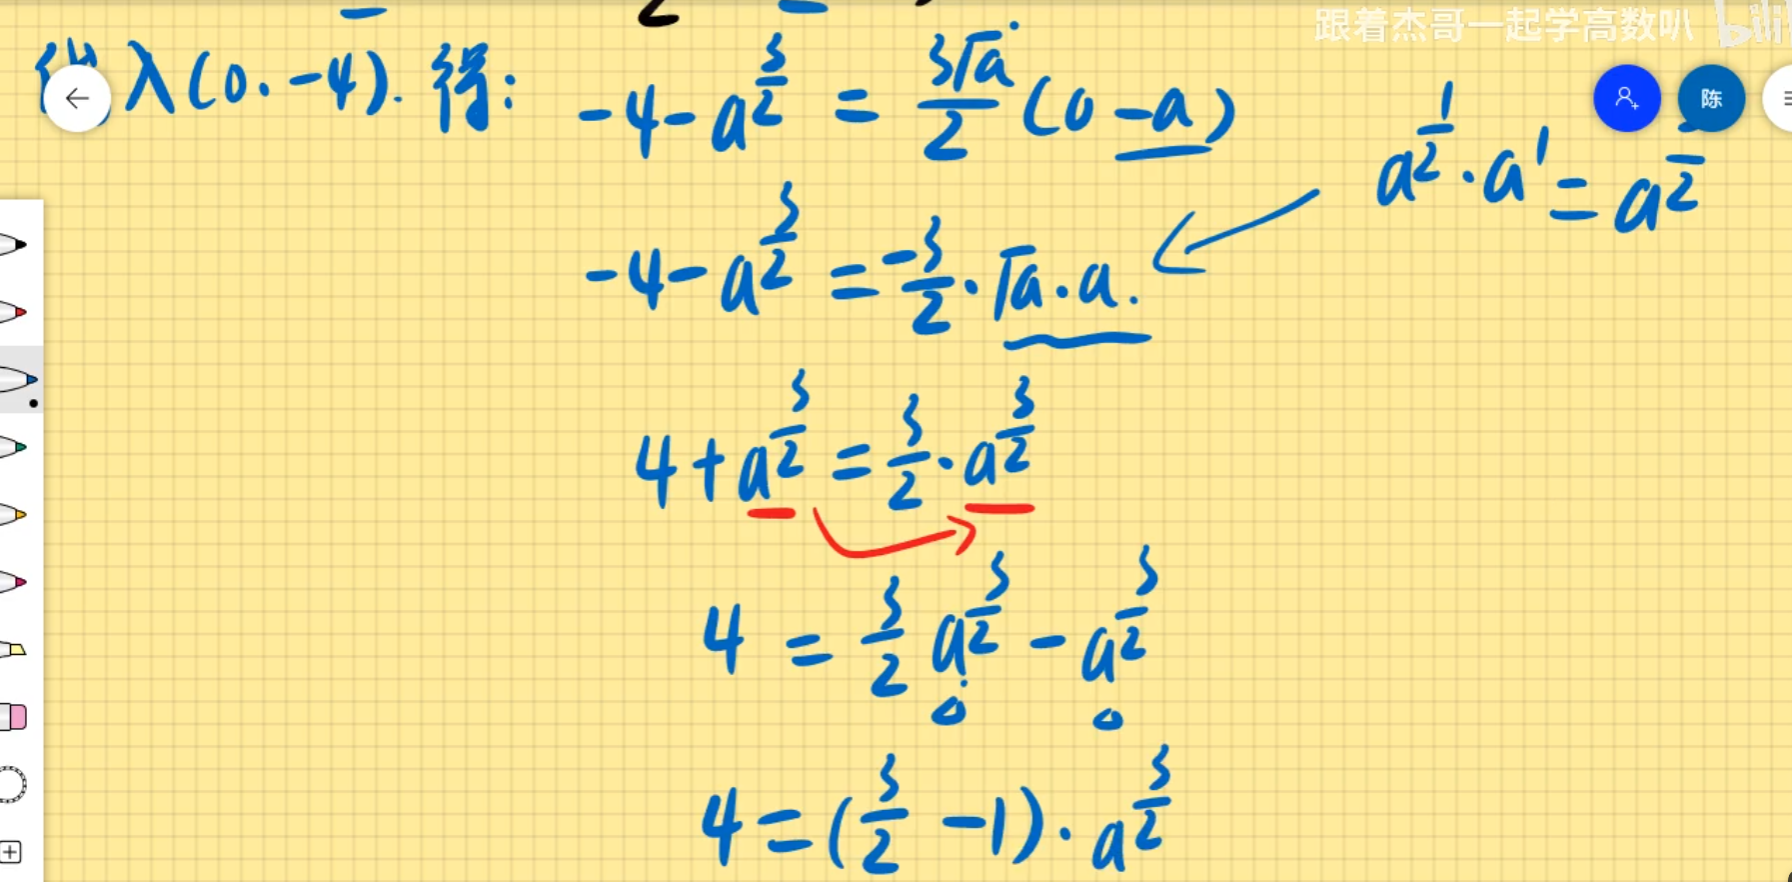 跟着杰哥一起学高数叭 bili
陈
入(0,-4). 得: -4-a^{3/2} = \frac{3\sqrt{a}}{2}(0-a)
a^{1/2}·a^1=a^{\frac{}{2}}
-4-a^{3/2} = -\frac{3}{2}·\sqrt{a}·a.
4+a^{3/2} = \frac{3}{2}·a^{3/2}
4 = \frac{3}{2}a^{3/2} - a^{3/2}
4=(\frac{3}{2}-1)·a^{3/2}